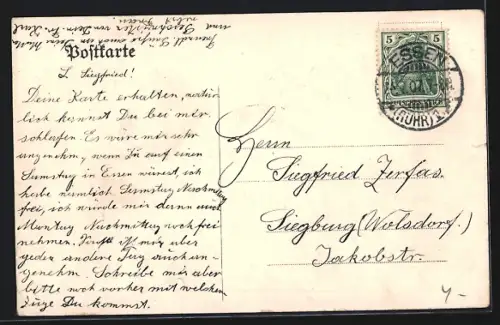 Postkarte
L. Siegfried!
Deine Karte erhalten, natür-
lich kannst Du bei mir
schlafen. Es wäre mir sehr
angenehm, wenn Du auf einen
Samstag in Essen wärest, ich
habe nämlich Samstag Nachmittag
frei, ich würde mir dann auch
Montag Nachmittag noch frei
nehmen. Sonst ist mir aber
jeder andere Tag auch an-
genehm. Schreibe mir aber
bitte noch vorher mit welchem
Zuge Du kommst.
und Geschwister von Dein.
5 5
ESSEN
07
(RUHR) 1
Herrn
Siegfried Zerfas.
Siegburg (Wolsdorf.)
Jakobstr.
4-